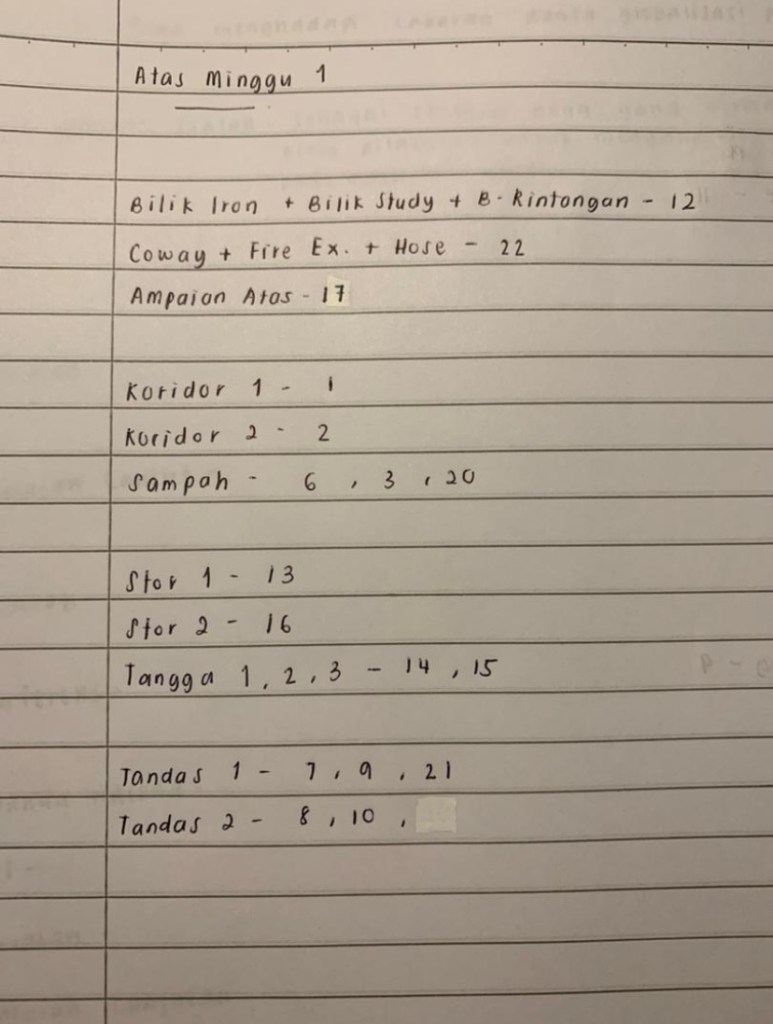 Atas Minggu 1
Bilik Iron + Bilik Study + B. Rintongan - 12
Coway + Fire Ex. + Hose - 22
Ampaian Atas - 17
Koridor 1 - 1
Koridor 2 - 2
Sampah - 6, 3, 20
Stor 1 - 13
Stor 2 - 16
Tangga 1, 2, 3 - 14, 15
Tandas 1 - 7, 9, 21
Tandas 2 - 8, 10,